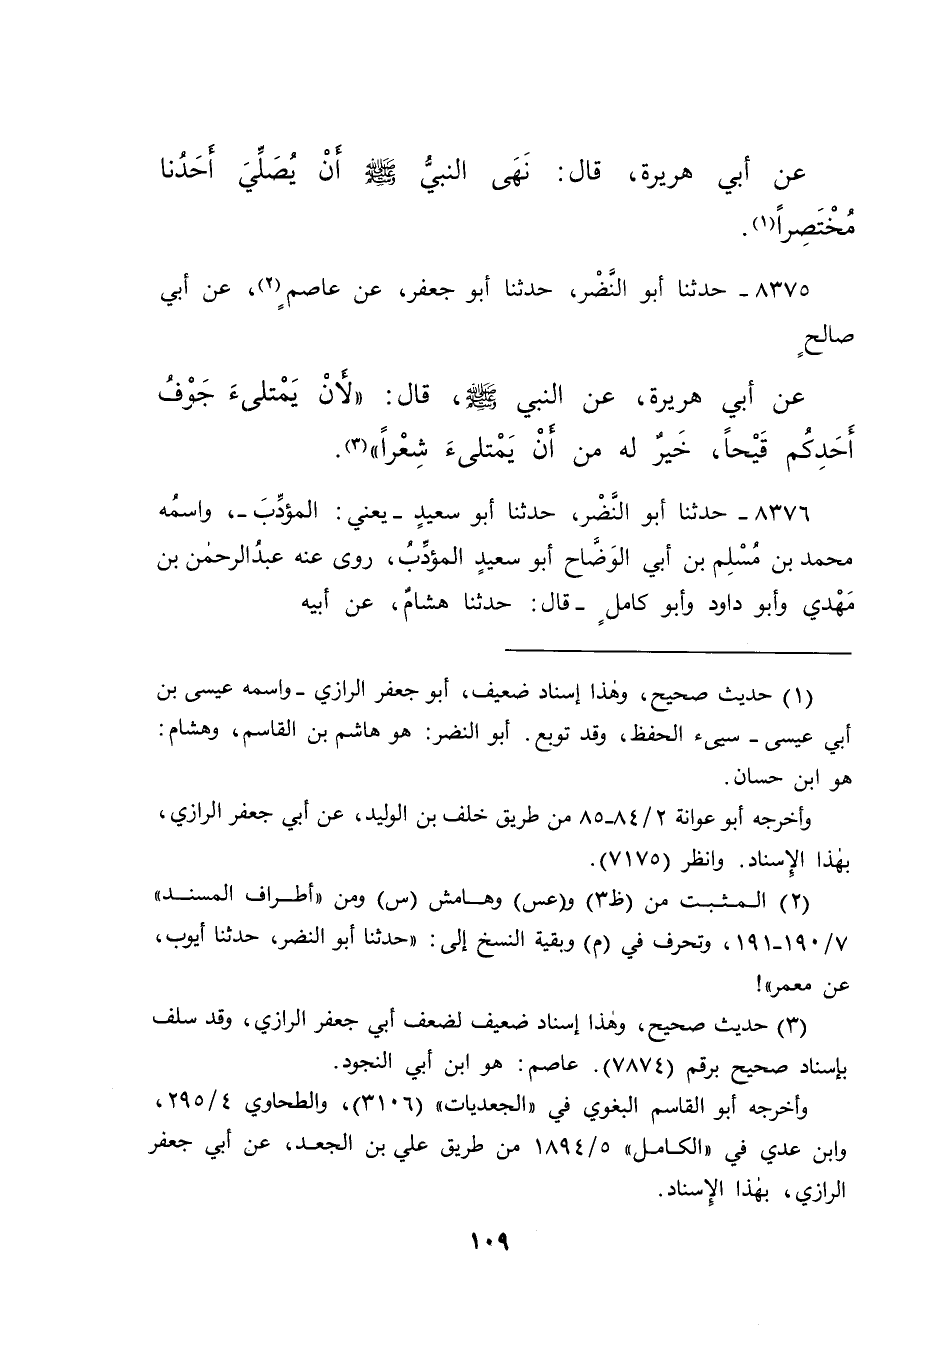 عن أبي هريرة، قال: نَهَى النبيُّ ﷺ أَنْ يُصَلِّيَ أَحَدُنا
مُخْتَصِراً(١).
٨٣٧٥ ـ حدثنا أبو النَّضْر، حدثنا أبو جعفر، عن عاصمٍ(٢)، عن أبي
صالحٍ
عن أبي هريرة، عن النبي ﷺ، قال: «لَأَنْ يَمْتلىءَ جَوْفُ
أَحَدِكُم قَيْحاً، خَيرٌ له من أَنْ يَمْتلىءَ شِعْراً»(٣).
٨٣٧٦ ـ حدثنا أبو النَّضْر، حدثنا أبو سعيدٍ ـ يعني: المؤدِّبَ ـ، واسمُه
محمد بن مُسْلِم بن أبي الوَضَّاح أبو سعيدٍ المؤدِّبُ، روى عنه عبدُالرحمٰن بن
مَهْدي وأبو داود وأبو كاملٍ ـ قال: حدثنا هشامٌ، عن أبيه
(١) حديث صحيح، وهٰذا إسناد ضعيف، أبو جعفر الرازي ـ واسمه عيسى بن
أبي عيسى ـ سيىء الحفظ، وقد توبع. أبو النضر: هو هاشم بن القاسم، وهشام:
هو ابن حسان.
وأخرجه أبو عوانة ٢/ ٨٤ـ٨٥ من طريق خلف بن الوليد، عن أبي جعفر الرازي،
بهٰذا الإسناد. وانظر (٧١٧٥).
(٢) المثبت من (ظ٣) و(عس) وهامش (س) ومن «أطراف المسند»
٧/ ١٩٠ـ١٩١، وتحرف في (م) وبقية النسخ إلى: «حدثنا أبو النضر، حدثنا أيوب،
عن معمر»!
(٣) حديث صحيح، وهٰذا إسناد ضعيف لضعف أبي جعفر الرازي، وقد سلف
بإسناد صحيح برقم (٧٨٧٤). عاصم: هو ابن أبي النجود.
وأخرجه أبو القاسم البغوي في «الجعديات» (٣١٠٦)، والطحاوي ٤/ ٢٩٥،
وابن عدي في «الكامل» ٥/ ١٨٩٤ من طريق علي بن الجعد، عن أبي جعفر
الرازي، بهٰذا الإسناد.
١٠٩